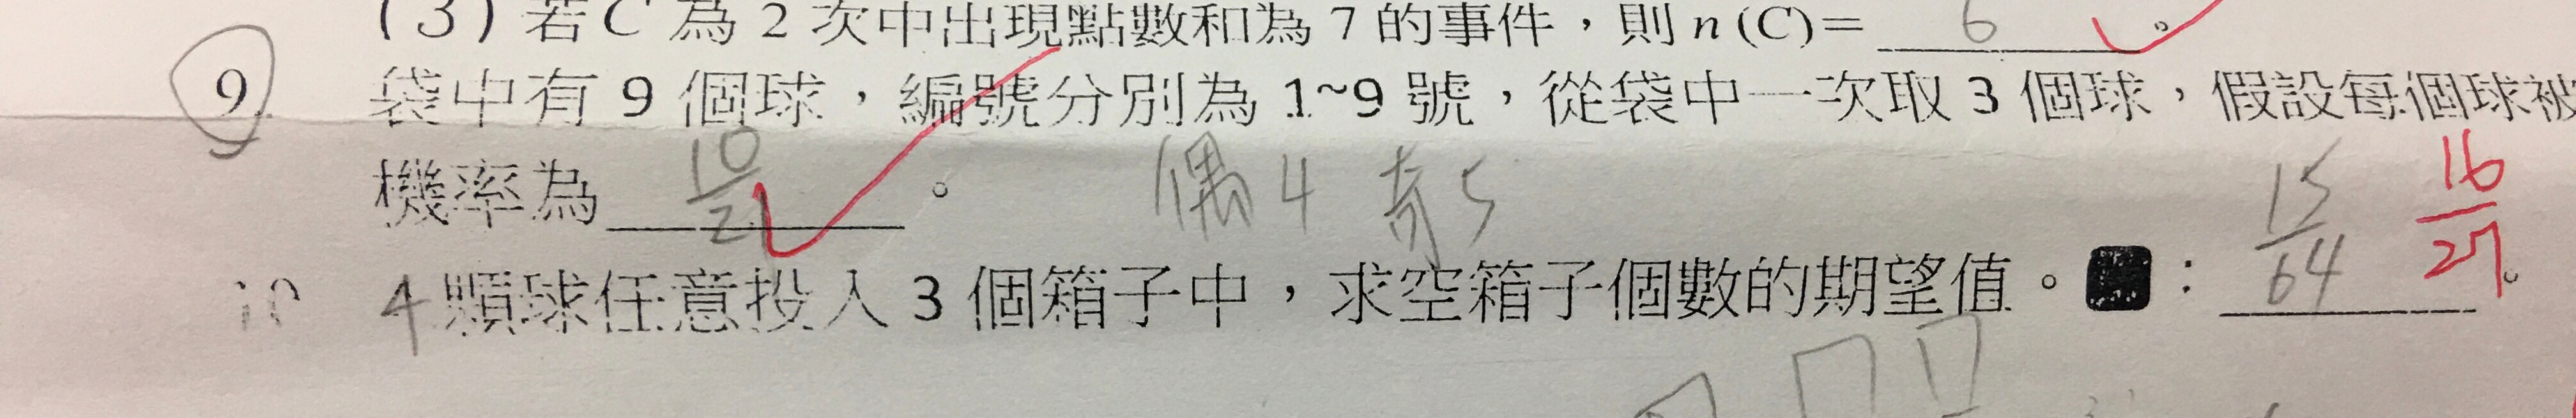 (3) 若 C 為 2 次中出現點數和為 7 的事件，則 n (C)= 6 。
9. 袋中有 9 個球，編號分別為 1~9 號，從袋中一次取 3 個球，假設每個球被
機率為 10/21 。 偶 4 奇 5
10 4 顆球任意投入 3 個箱子中，求空箱子個數的期望值。 : 15/64 16/27 。